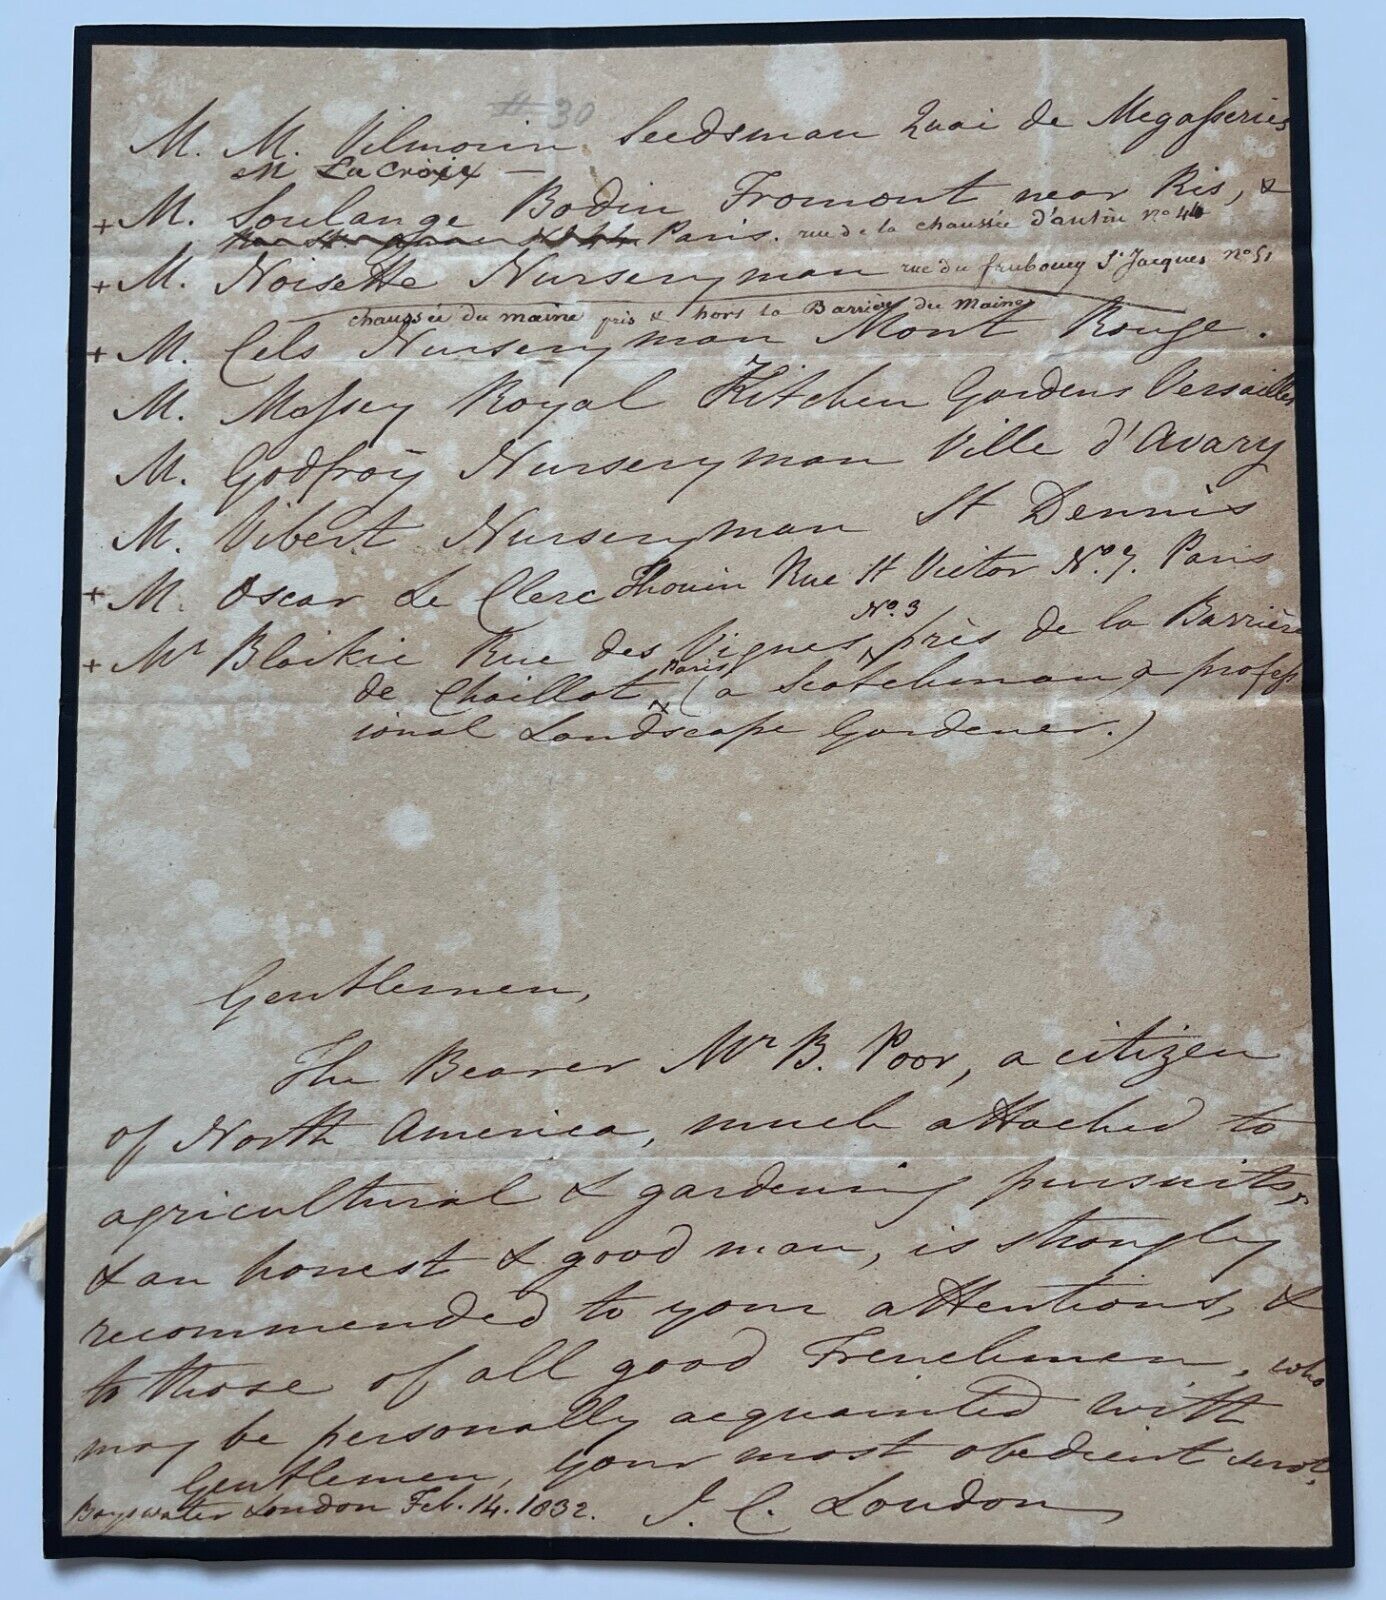 # 30
M. M. Vilmorin Seedsman Quai de Megasseries
M La Croix —
+ M. Soulange Bodin Fromont near Ris, &
Paris. rue de la chaussée d'antin no 44
+ M. Noisette Nurseryman rue du fauboug St Jacques no 51
chaussée du maine près & hors la Barrière du Maine
+ M. Cels Nurseryman Mont Rouge.
M. Massey Royal Kitchen Gardens Versailles
M. Godfroy Nurseryman Ville d'Avary
M. Vibert Nurseryman St Dennis
+ M. Oscar Le Clerc Thouin Rue St Victor No. 7. Paris
+ Mr Blaikie Rue des Vignes, No. 3 près de la Barrière
de Chaillot Paris (a Scotchman, a profess
ional Landscape Gardener.)
Gentlemen,
The Bearer Mr B. Poor, a citizen
of North America, much attached to
agricultural & gardening pursuits,
& an honest & good man, is strongly
recommended to your attentions, &
to those of all good Frenchmen, who
may be personally acquainted with
Gentlemen, your most obedient servt.
Bayswater London Feb. 14. 1832. J. C. Loudon